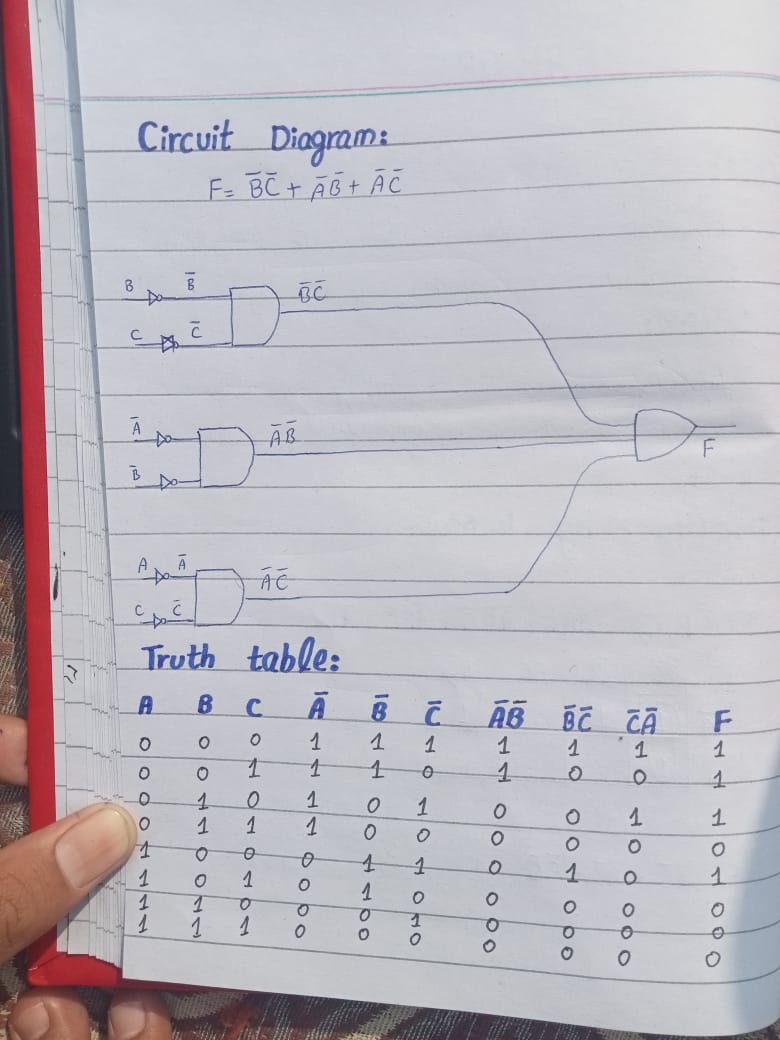 Circuit Diagram:
F= B̅C̅ + A̅B̅ + A̅C̅
B B̅ B̅C̅
C C̅
A̅ A̅B̅
B̅ F
A A̅ A̅C̅
C C̅
Truth table:
A B C A̅ B̅ C̅ A̅B̅ B̅C̅ C̅A̅ F
0 0 0 1 1 1 1 1 1 1
0 0 1 1 1 0 1 0 0 1
0 1 0 1 0 1 0 0 1 1
0 1 1 1 0 0 0 0 0 0
1 0 0 0 1 1 0 1 0 1
1 0 1 0 1 0 0 0 0 0
1 1 0 0 0 1 0 0 0 0
1 1 1 0 0 0 0 0 0 0